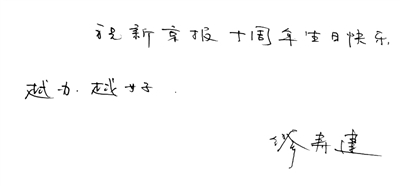 祝新京报十周年生日快乐,
越办越好.
缪寿建